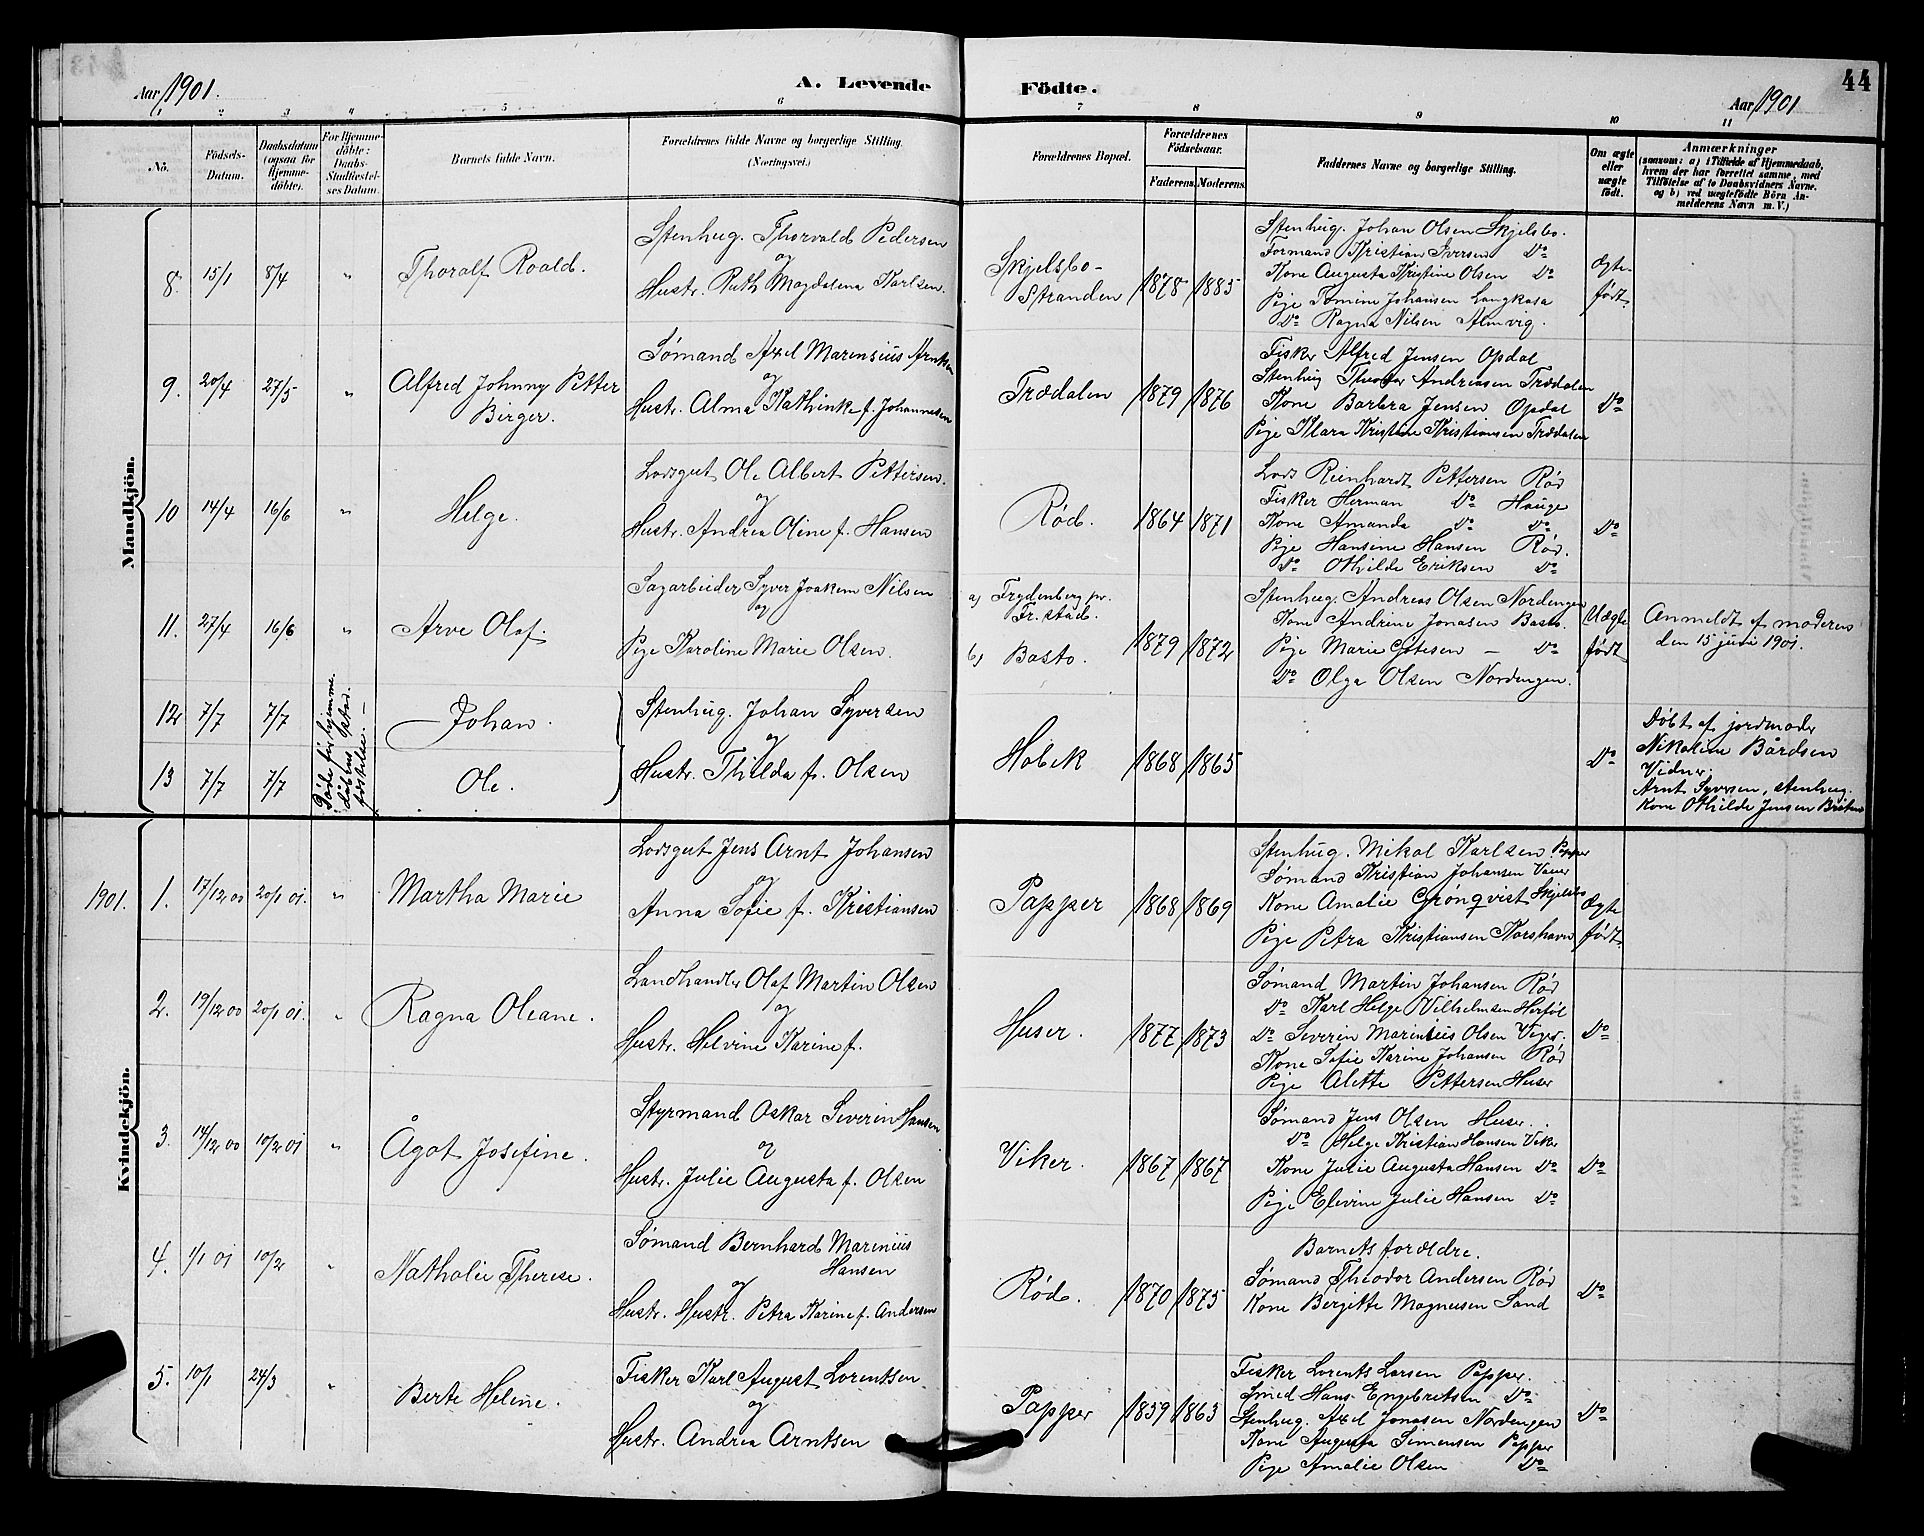 Aar 1901.
A. Levende Födte.
Aar 1901
44
1 2 3 4 5 6 7 8 9 10 11
No.
Födsels-Datum.
Daabsdatum (ogsaa for Hjemme-döbte).
For Hjemme-döbte: Daabs-Stadfæstel-ses Datum.
Barnets fulde Navn.
Forældrenes fulde Navne og borgerlige Stilling. (Næringsvei.)
Forældrenes Bopæl.
Forældrenes Födselsaar.
Faderens. Moderens.
Faddernes Navne og borgerlige Stilling.
Om ægte eller uægte födt.
Anmærkninger
(saasom: a) i Tilfælde af Hjemmedaab, hvem der har forrettet samme, med Tilföielse af to Daabsvidners Navne, og b) ved uægtefödte Börn Anmelderens Navn m. V.)
Mandkjön.
8. 15/1 8/4 " Thoralf Roald.
Stenhug. Thorvald Pedersen
og
Hustr. Ruth Magdalena Karlsen.
Skjelsbo-
Stranden
1878 1885
Stenhug. Johan Olsen Skjelsbo.
Formand Kristian Iversen Do
Kone Augusta Kristine Olsen Do
Pige Tomine Johansen Langkasa
Do Ragna Nilsen Almvig.
Ægte-
født
9. 20/4 27/5 " Alfred Johnny Petter
Birger.
Sømand Axel Marensius Arntsen
og
Hustr. Alma Kathinka f. Johannesen
Trædalen
1879 1876
Fisker Alfred Jensen Opdal
Stenhug Theodor Andreasen Trædalen
Kone Barbra Jensen Opdal
Pige Klara Kristine Kristiansen Trædalen
Do
10 14/4 16/6 " Helge.
Lodsgut Ole Albert Pettersen.
og
Hustr. Andrea Oline f. Hansen
Rød.
1864 1871
Lods Reinhardt Pettersen Rød
Fisker Herman Do Hauge
Kone Amanda Do Do
Pige Hansine Hansen Rød.
Do Othilde Eriksen Do
Do
11. 27/4 16/6 " Arve Olaf.
Sagarbeider Syver Joakim Nilsen
og
Pige Karoline Marie Olsen.
a) Frydenberg pr.
Fr.stad.
b) Basto.
1879 1872
Stenhug. Andreas Olsen Nordengen
Kone Andrine Jonasen Basto.
Pige Marie Gjtesen - Do
Do Olga Olsen Nordengen.
Uægte
født
Anmeldt af moderen
den 15 juni 1901.
12 7/7 7/7 Johan.
13 7/7 7/7 Ole.
Døde før hjemme-
Stenhug. Johan Syversen
og
Hustr. Thilda f. Olsen
Hobek
1868 1865
Do
Døbt af jordmoder
Nikoline Bårdsen
Vidner:
Arnt Syversen, stenhug.
Kone Othilde Jensen Bråten
Kvindekjön.
1901. 1. 17/12 00 20/1 01. " Martha Marie
Lodsgut Jens Arnt Johansen
og
Anna Sofie f. Kristiansen
Papper
1868 1869
Stenhug. Mikal Karlsen Papper
Sømand Kristian Johansen Vauer
Kone Amalie Grönqvist Skjelsbo
Pige Petra Kristiansen Korshavn
Ægte
født
2. 19/12 00 20/1 01. " Ragna Oleane.
Landhandler Olaf Martin Olsen
og
Hustr. Helvine Karine f.
Huser.
1877 1873
Sømand Martin Johansen Rød
Do Karl Helge Vilhelmsen Herføl
Do Severin Marinius Olsen Viger.
Kone Sofie Karine Johansen Rød
Pige Alette Pettersen Huser
Do
3. 14/12 00 10/2 01 " Ågot Josefine.
Styrmand Oskar Severin Hansen
og
Hustr. Julie Augusta f. Olsen
Viker.
1867 1867
Sømand Jens Olsen Huser.
Do Helge Kristian Hansen Viker
Kone Julie Augusta Hansen Do
Pige Elevine Julie Hansen Do
Do
4. 1/1 01 10/2 " Nathalie Therese.
Sømand Bernhard Marinius
Hansen
og
Hustr. Hustr. Petra Karine f. Andersen
Rød.
1870 1875
Barnets forældre.
Sømand Theodor Andersen Rød
Kone Bergitte Magnusen Sand
Do
5. 10/1 24/3 " Berte Helene.
Fisker Karl August Lorentsen
og
Hustr. Andrea Arntsen
Papper
1859 1863
Fisker Lorents Larsen Papper.
Smed Hans Engebretsen Do
Stenhug. Axel Jonasen Nordengen
Kone Augusta Simensen Papper
Pige Amalie Olsen Do
Do